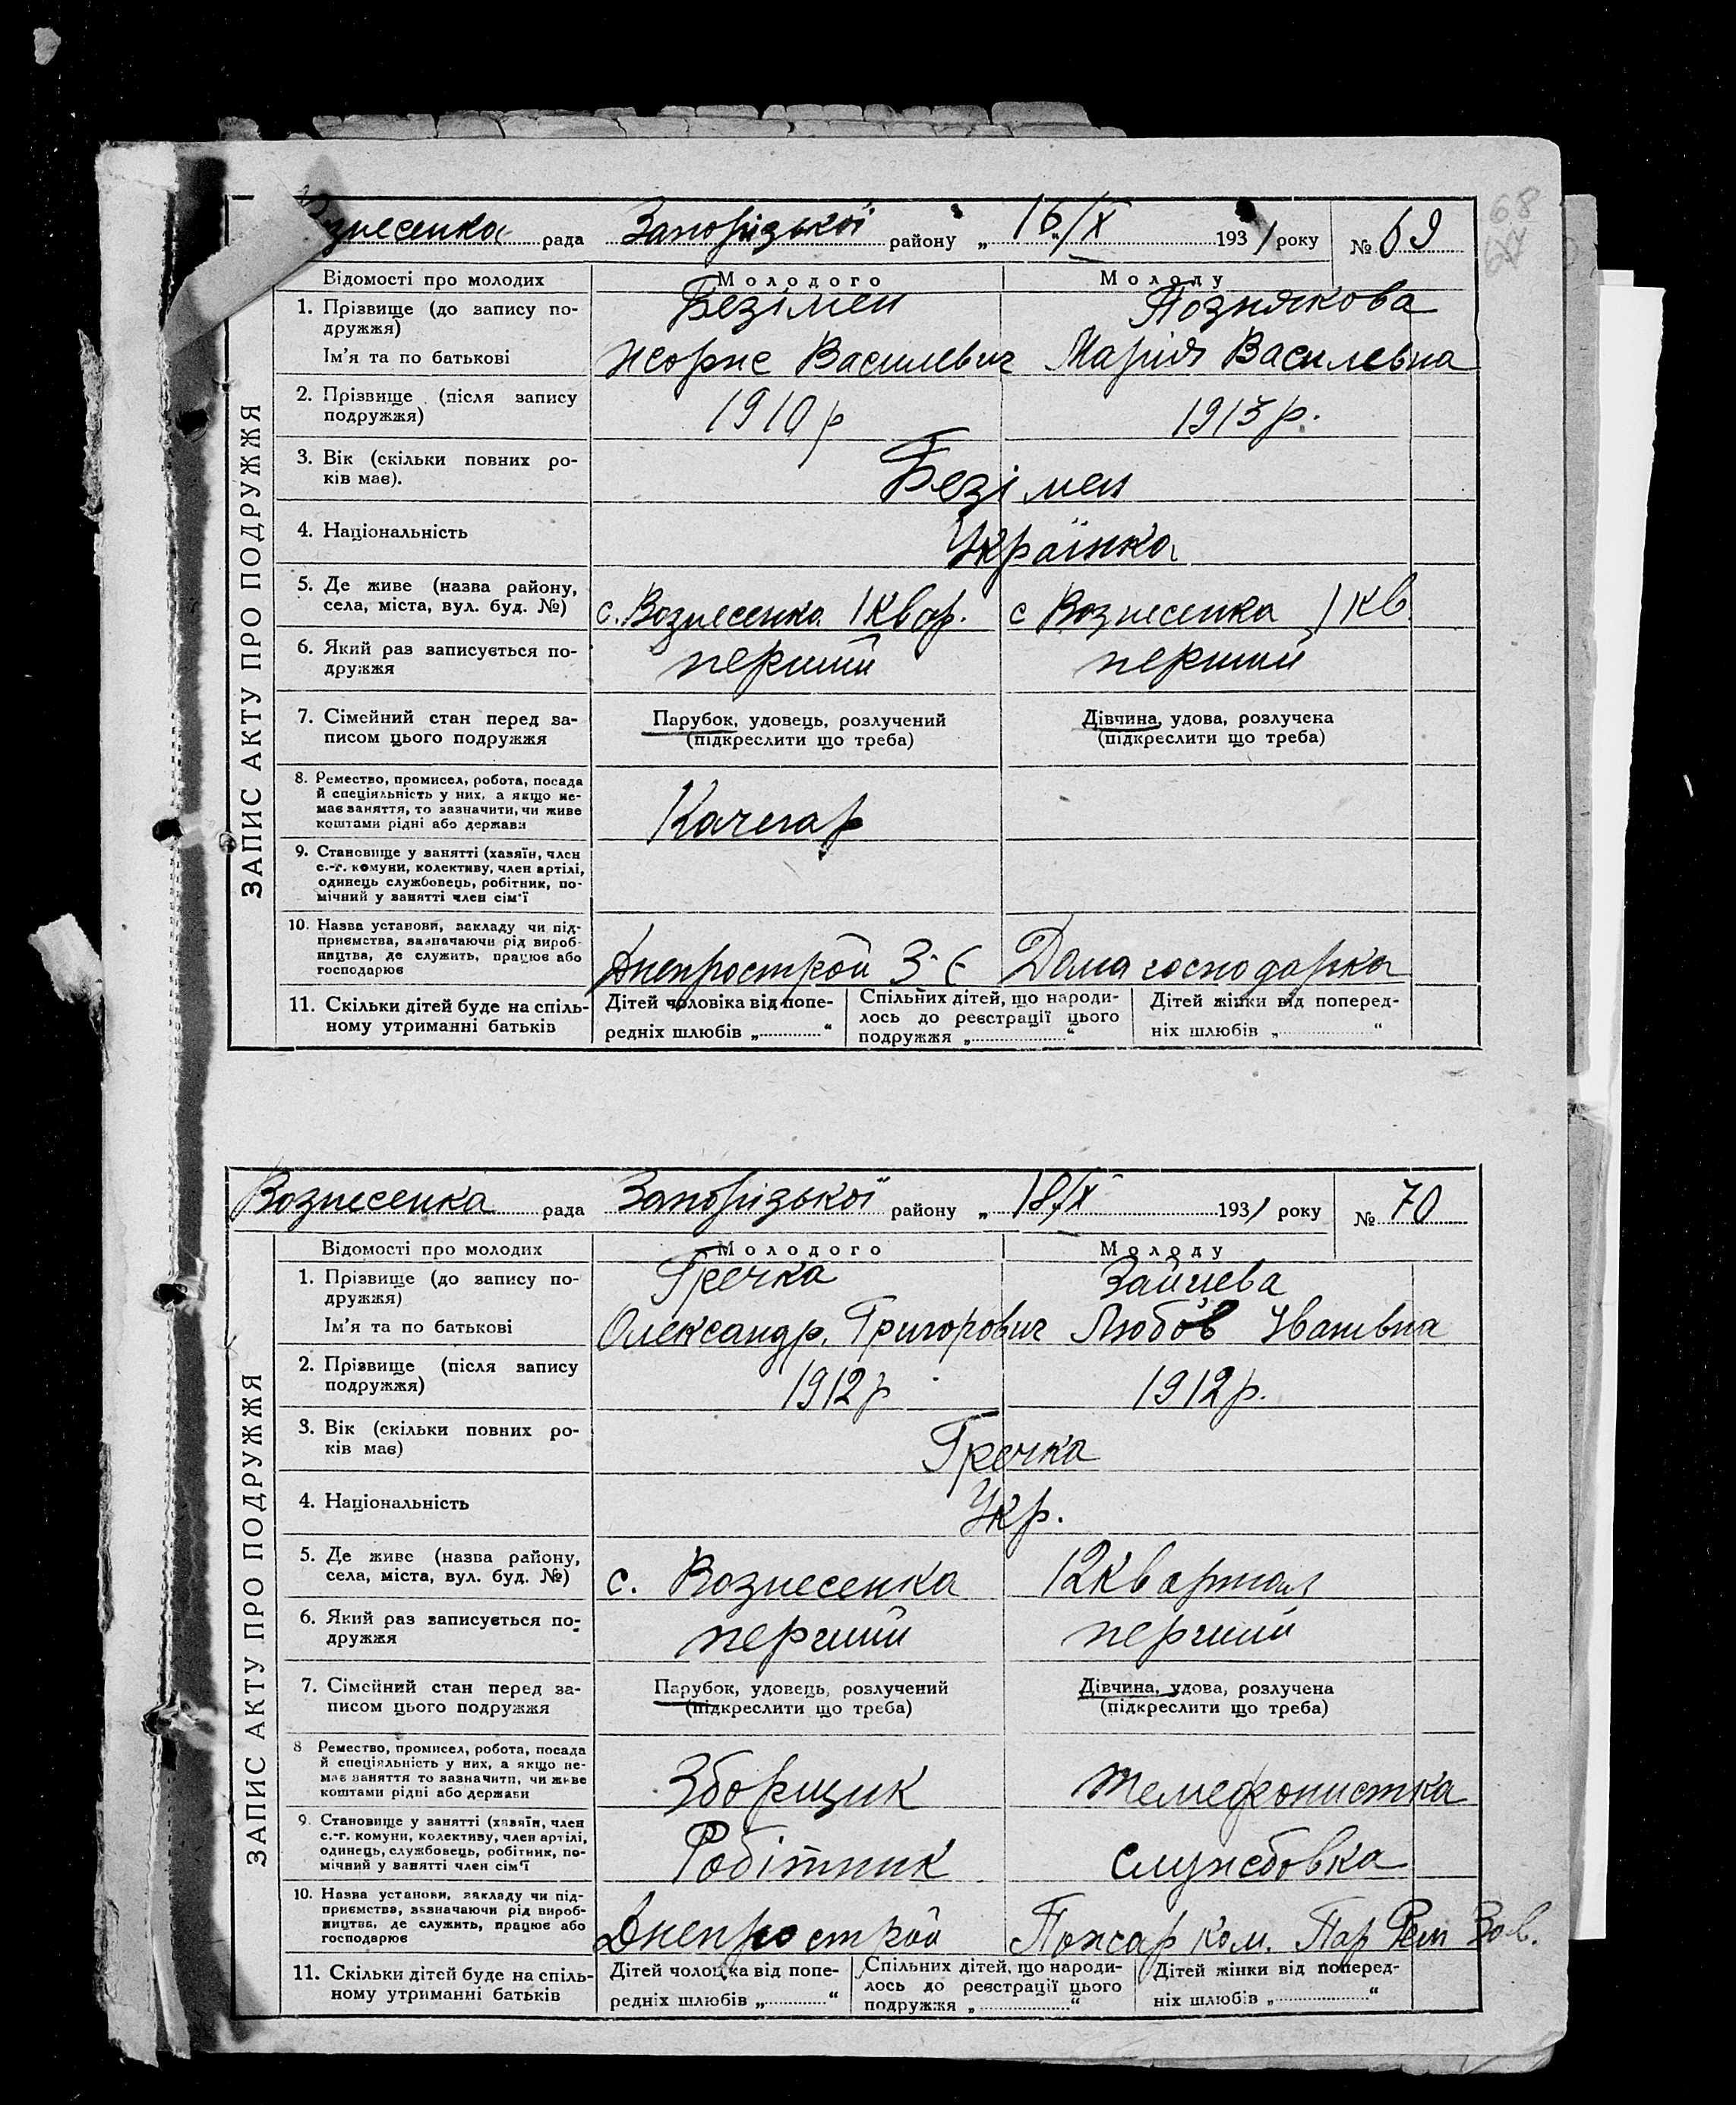 68
ЗАПИС АКТУ ПРО ПОДРУЖЖЯ
знесенка рада Запорізької району „ 16/IX 1931 року № 69
Відомості про молодих Молодого Молоду
1. Прізвище (до запису по- Безімен Познякова
дружжя)
Ім'я та по батькові Жорже Василевич Марія Василевна
2. Прізвище (після запису 1910р 1913р.
подружжя)
3. Вік (скільки повних ро- Безімен
ків має).
4. Національність Українка
5. Де живе (назва району,
села, міста, вул. буд. №) с. Вознесенка 1 квар. с Вознесенка 1 кв
6. Який раз записується по- перший перший
дружжя
7. Сімейний стан перед за- Парубок, удовець, розлучений Дівчина, удова, розлучена
писом цього подружжя (підкреслити що треба) (підкреслити що треба)
8. Ремество, промисел, робота, посада
й спеціяльність у них, а якщо не-
має заняття, то зазначити, чи живе Качегар
коштами рідні або держави
9. Становище у занятті (хазяїн, член
с.-г. комуни, колективу, член артілі,
одинець службовець, робітник, по-
мічний у занятті член сім'ї
10. Назва установи, закладу чи під-
приємства, зазначаючи рід вироб-
ництва, де служить, працює або Днепрострой Дома господарка
господарює
11. Скільки дітей буде на спіль- Дітей чоловіка від попе- Спільних дітей, що народи- Дітей жінки від поперед-
ному утриманні батьків редніх шлюбів „ “ лось до реєстрації цього ніх шлюбів „ “
подружжя „ “
ЗАПИС АКТУ ПРО ПОДРУЖЖЯ
Вознесенка рада Запорізької району „ 18/IX 1931 року № 70
Відомості про молодих Молодого Молоду
1. Прізвище (до запису по- Гречка Зайцева
дружжя)
Ім'я та по батькові Олександр. Григорович Любов Іванівна
2. Прізвище (після запису 1912р 1912р.
подружжя)
3. Вік (скільки повних ро- Гречка
ків має)
4. Національність Укр.
5. Де живе (назва району,
села, міста, вул. буд. №) с. Вознесенка 12 квартал
6. Який раз записується по- перший перший
дружжя
7. Сімейний стан перед за- Парубок, удовець, розлучений Дівчина, удова, розлучена
писом цього подружжя (підкреслити що треба) (підкреслити що треба)
8 Ремество, промисел, робота, посада
й спеціяльність у них, а якщо не-
має заняття то зазначити, чи живе Зборщик телефонистка
коштами рідні або держави
9. Становище у занятті (хазяїн, член
с.-г. комуни, колективу, член артілі,
одинець, службовець, робітник, по- Робітник службовка
мічний у занятті член сім'ї
10. Назва установи, закладу чи під-
приємства, зазначаючи рід вироб-
ництва, де служить, працює або Днепрострой Пожар ком. Пар Рем Зав.
господарює
11. Скільки дітей буде на спіль- Дітей чоловіка від попе- Спільних дітей, що народи- Дітей жінки від поперед-
ному утриманні батьків редніх шлюбів „ “ лось до реєстрації цього ніх шлюбів „ “
подружжя „ “